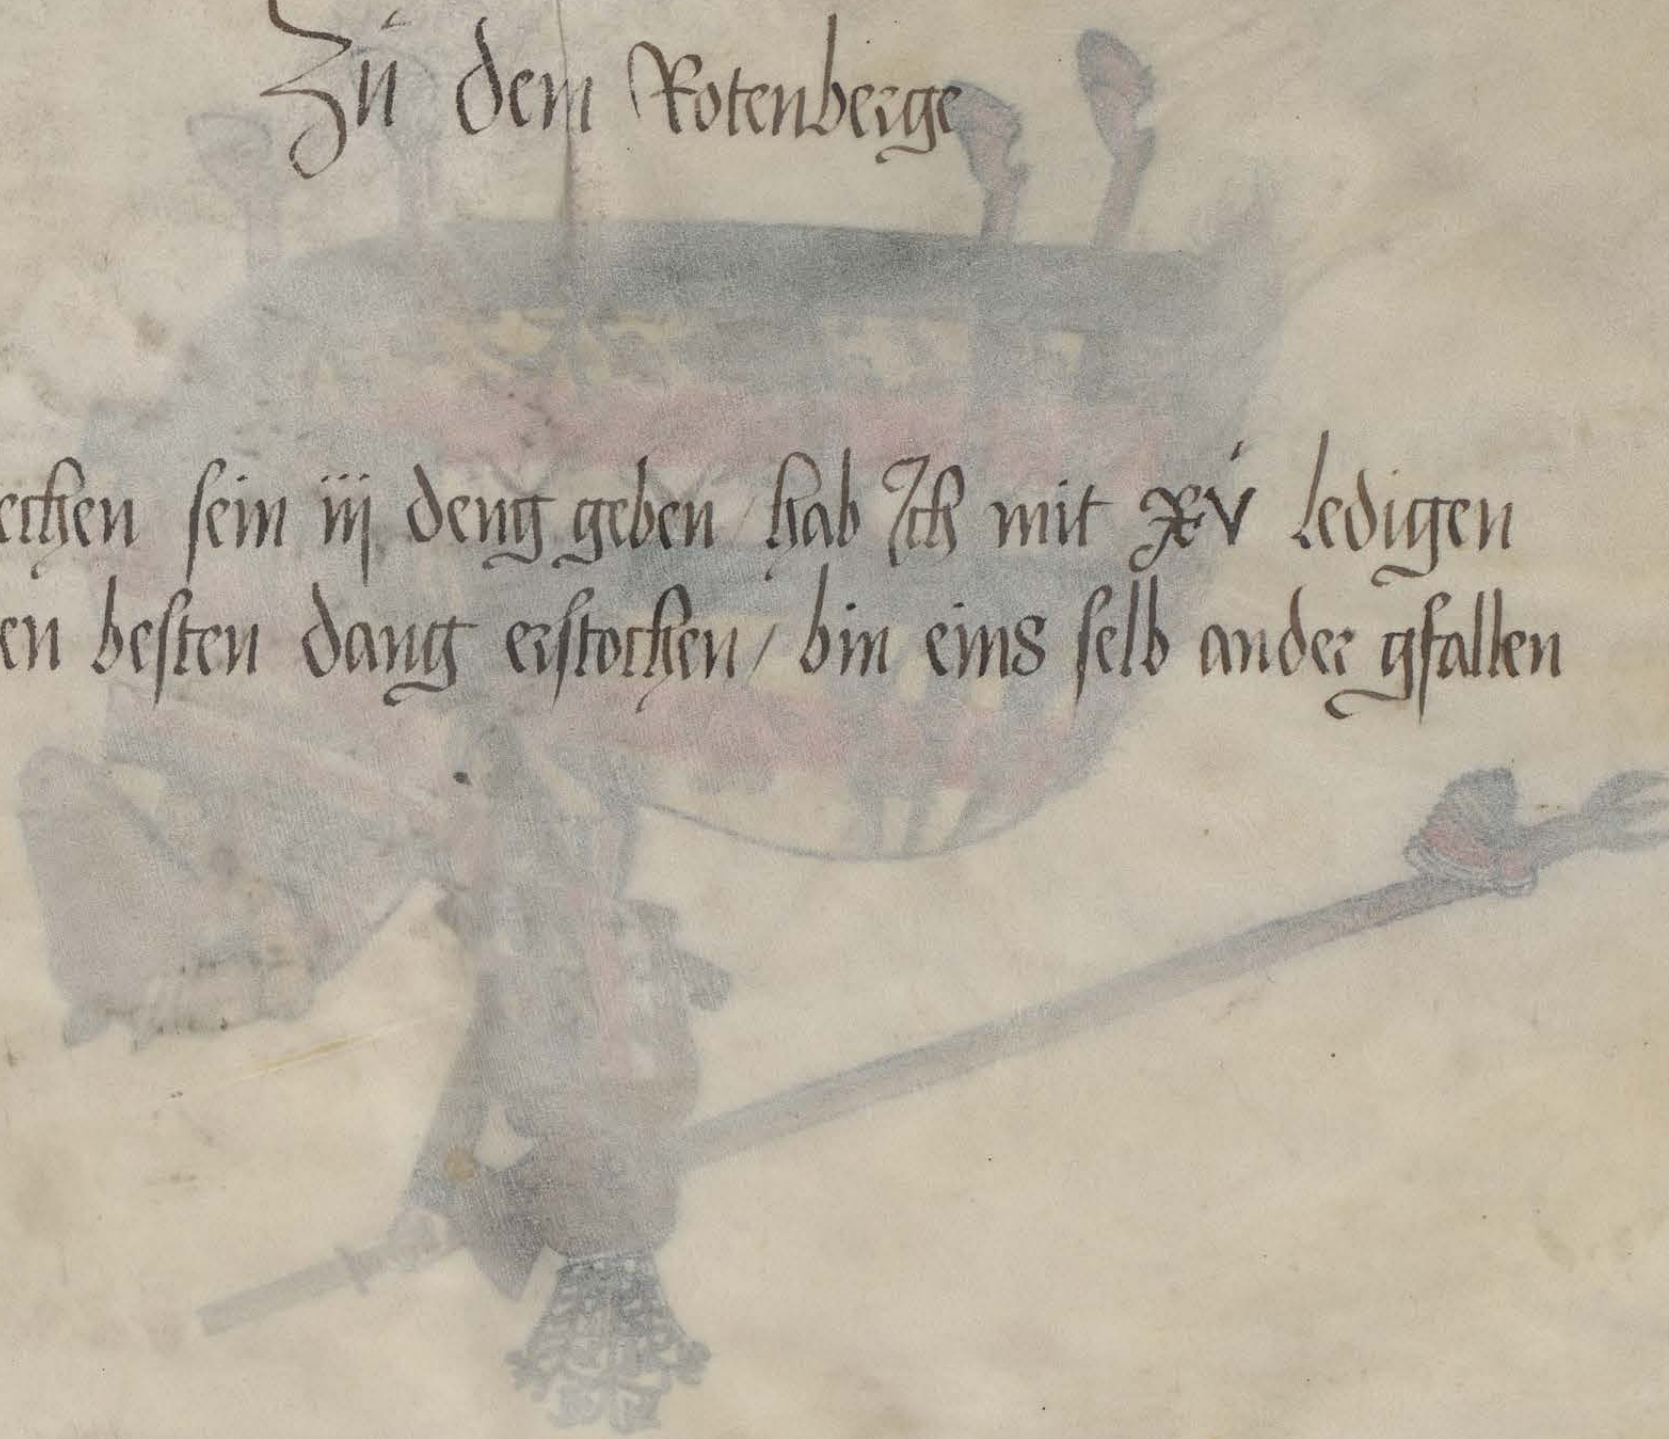 Zů dem Rotenberge
echen sein iij deng geben / hab Ich mit xv ledigen
en besten dang erstochen / bin eins selb ander gfallen